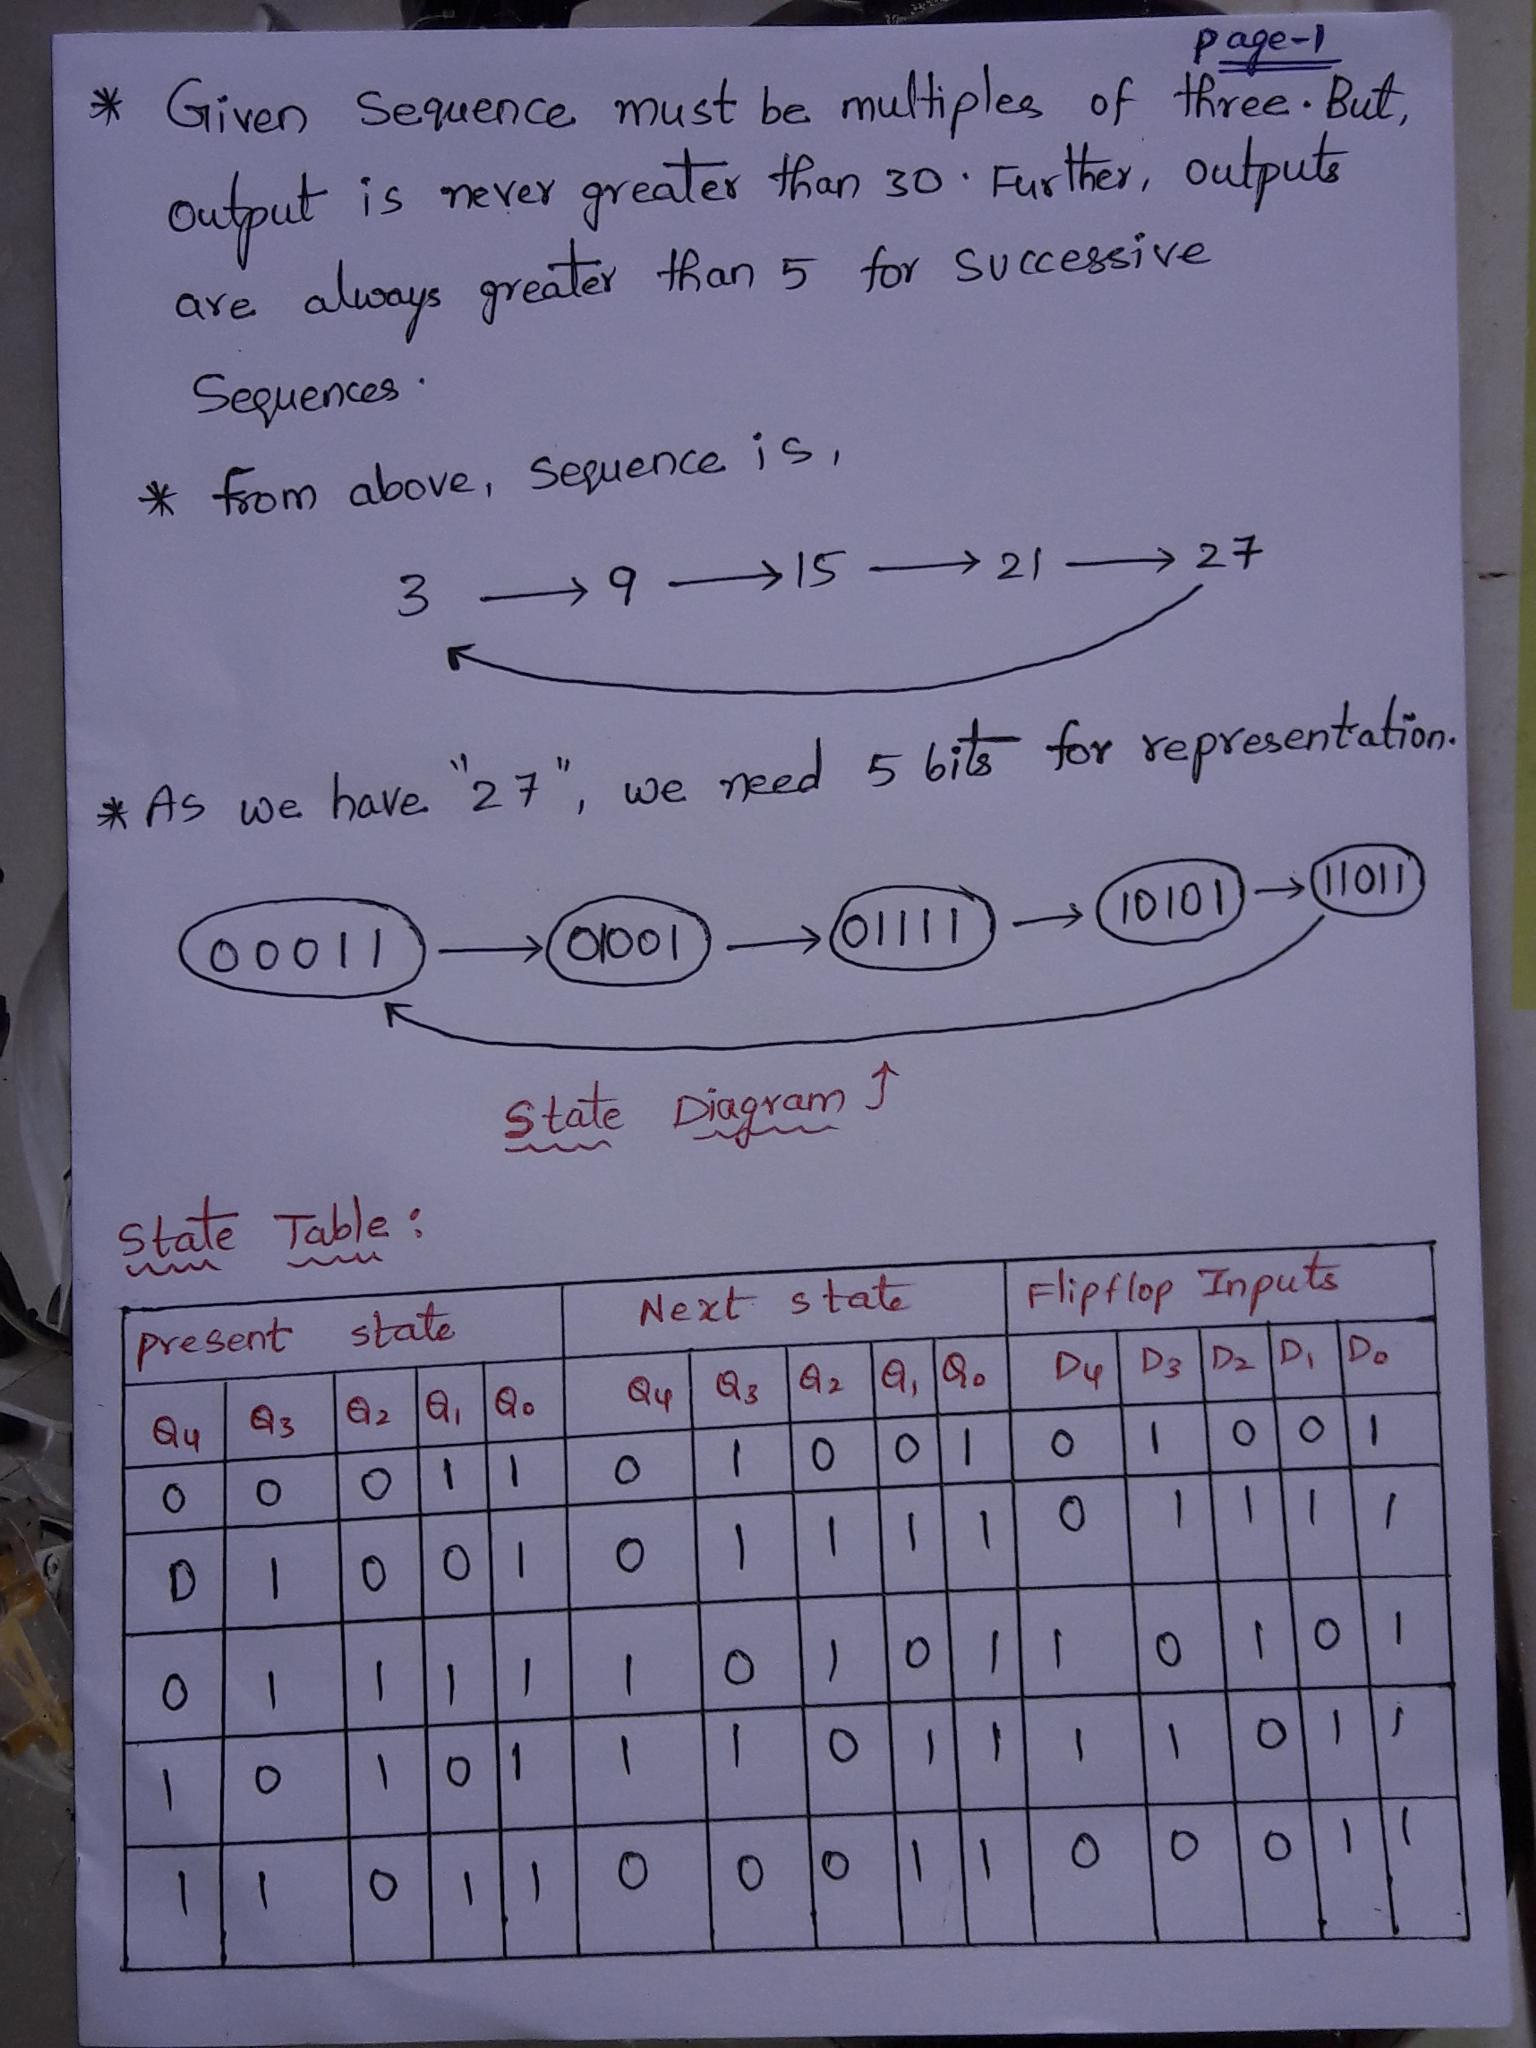 page-1
* Given Sequence must be multiples of three. But,
output is never greater than 30. Further, outputs
are always greater than 5 for successive
Sequences.
* from above, sequence is,
3 → 9 → 15 → 21 → 27
* As we have "27", we need 5 bits for representation.
00011 → 01001 → 01111 → 10101 → 11011
State Diagram ↑
State Table:
present state Next state Flipflop Inputs
Q4 Q3 Q2 Q1 Q0 Q4 Q3 Q2 Q1 Q0 D4 D3 D2 D1 D0
0 0 0 1 1 0 1 0 0 1 0 1 0 0 1
0 1 0 0 1 0 1 1 1 1 0 1 1 1 1
0 1 1 1 1 1 0 1 0 1 1 0 1 0 1
1 0 1 0 1 1 1 0 1 1 1 1 0 1 1
1 1 0 1 1 0 0 0 1 1 0 0 0 1 1